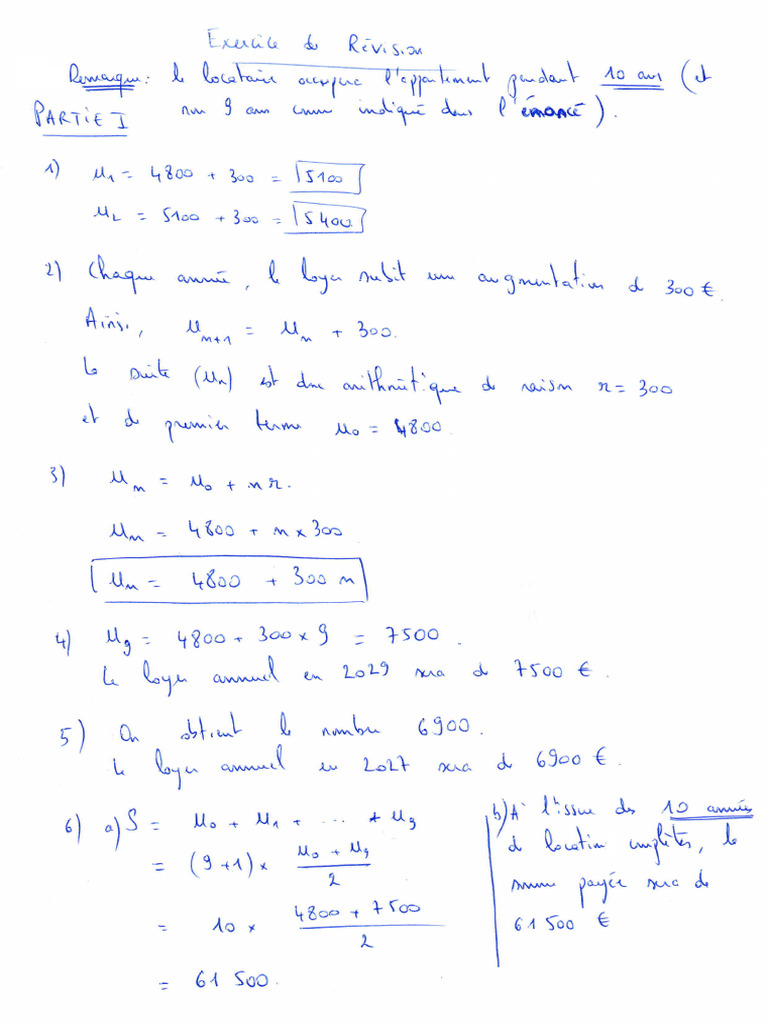 Exercice de Révision
Remarque : le locataire occupera l'appartement pendant 10 ans (et
non 9 ans comme indiqué dans l'énoncé).
PARTIE I
1) u₁ = 4800 + 300 = 5100
u₂ = 5100 + 300 = 5400
2) Chaque année, le loyer subit une augmentation de 300 €.
Ainsi, uₙ₊₁ = uₙ + 300.
La suite (uₙ) est donc arithmétique de raison r = 300
et de premier terme u₀ = 4800.
3) uₙ = u₀ + nr.
uₙ = 4800 + n × 300
uₙ = 4800 + 300 n
4) u₉ = 4800 + 300 × 9 = 7500.
Le loyer annuel en 2029 sera de 7500 €.
5) On obtient le nombre 6900.
Le loyer annuel en 2027 sera de 6900 €.
6) a) S = u₀ + u₁ + ... + u₉
= (9+1) × (u₀ + u₉) / 2
= 10 × (4800 + 7500) / 2
= 61 500.
b) A l'issue des 10 années
de location complètes, la
somme payée sera de
61 500 €